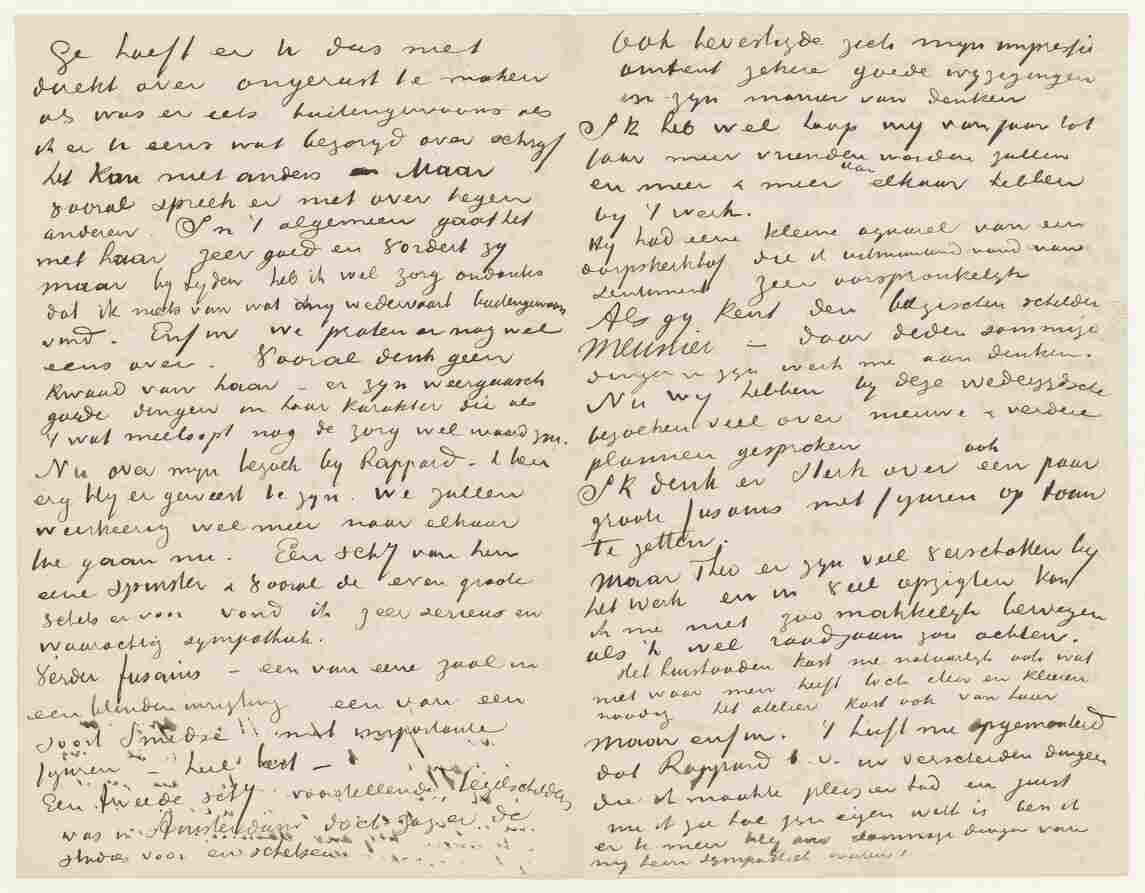 Ge hoeft er U dus niet
direkt over ongerust te maken
als was er iets buitengewoons als
ik er U eens wat bezorgd over schryf
het kan niet anders — Maar
vooral spreek er niet over tegen
anderen. In 't algemeen gaat het
met haar zeer goed en vordert zy
maar by tyden heb ik wel zorg ondanks
dat ik niets van wat my wedervaart buitengewoon
vind. Enfin we praten er nog wel
eens over. Vooral denk geen
kwaad van haar — er zyn weergaasch
goede dingen in haar karakter die als
't wat meeloopt nog de zorg wel waard zyn.
Nu over myn bezoek by Rappard — ik ben
erg bly er geweest te zyn. We zullen
weerkeerig wel meer naar elkaar
toe gaan nu. Een schy van hem
eene spinster & vooral de even groote
schets er voor vond ik zeer serieus en
waarachtig sympathiek.
Verder fusains — een van eene zaal in
een blinden inrigting een van een
soort smedse met importante
figuren — heel best —
Een tweede schy voorstellende tegelschilders
was in Amsterdam doch zag er de
studies voor en schetsen
Ook bevestigde zich myn impressie
omtrent zekere goede wyzigingen
in zyn manier van denken
Ik heb wel hoop wy van jaar tot
jaar meer vrienden worden zullen
en meer & meer aan elkaar hebben
by 't werk.
Hy had eene kleine aquarel van een
dorpskerkhof die ik uitmuntend vond van
sentiment zeer oorspronkelyk
Als gy kent den belgischen schilder
Meunier — daar deden sommige
dingen v zyn werk me aan denken.
Nu wy hebben by deze wederzydsche
bezoeken veel over nieuwe & verdere
plannen gesproken
Ik denk er sterk over ook een paar
groote fusains met figuren op touw
te zetten.
Maar Theo er zyn veel verschotten by
het werk en in veel opzigten kan
ik me niet zoo makkelyk bewegen
als 'k wel raadzaam zou achten.
Het huishouden kost me natuurlyk ook wat
niet waar men heeft toch eten en kleeren
noodig het atelier kost ook van huur
Maar enfin. 't heeft me opgemonterd
dat Rappard b.v. in verscheiden dingen
die ik maakte pleizier had en juist
nu ik zie hoe zyn eigen werk is ben ik
er te meer bly om sommige dingen van
my hem sympathiek waren!